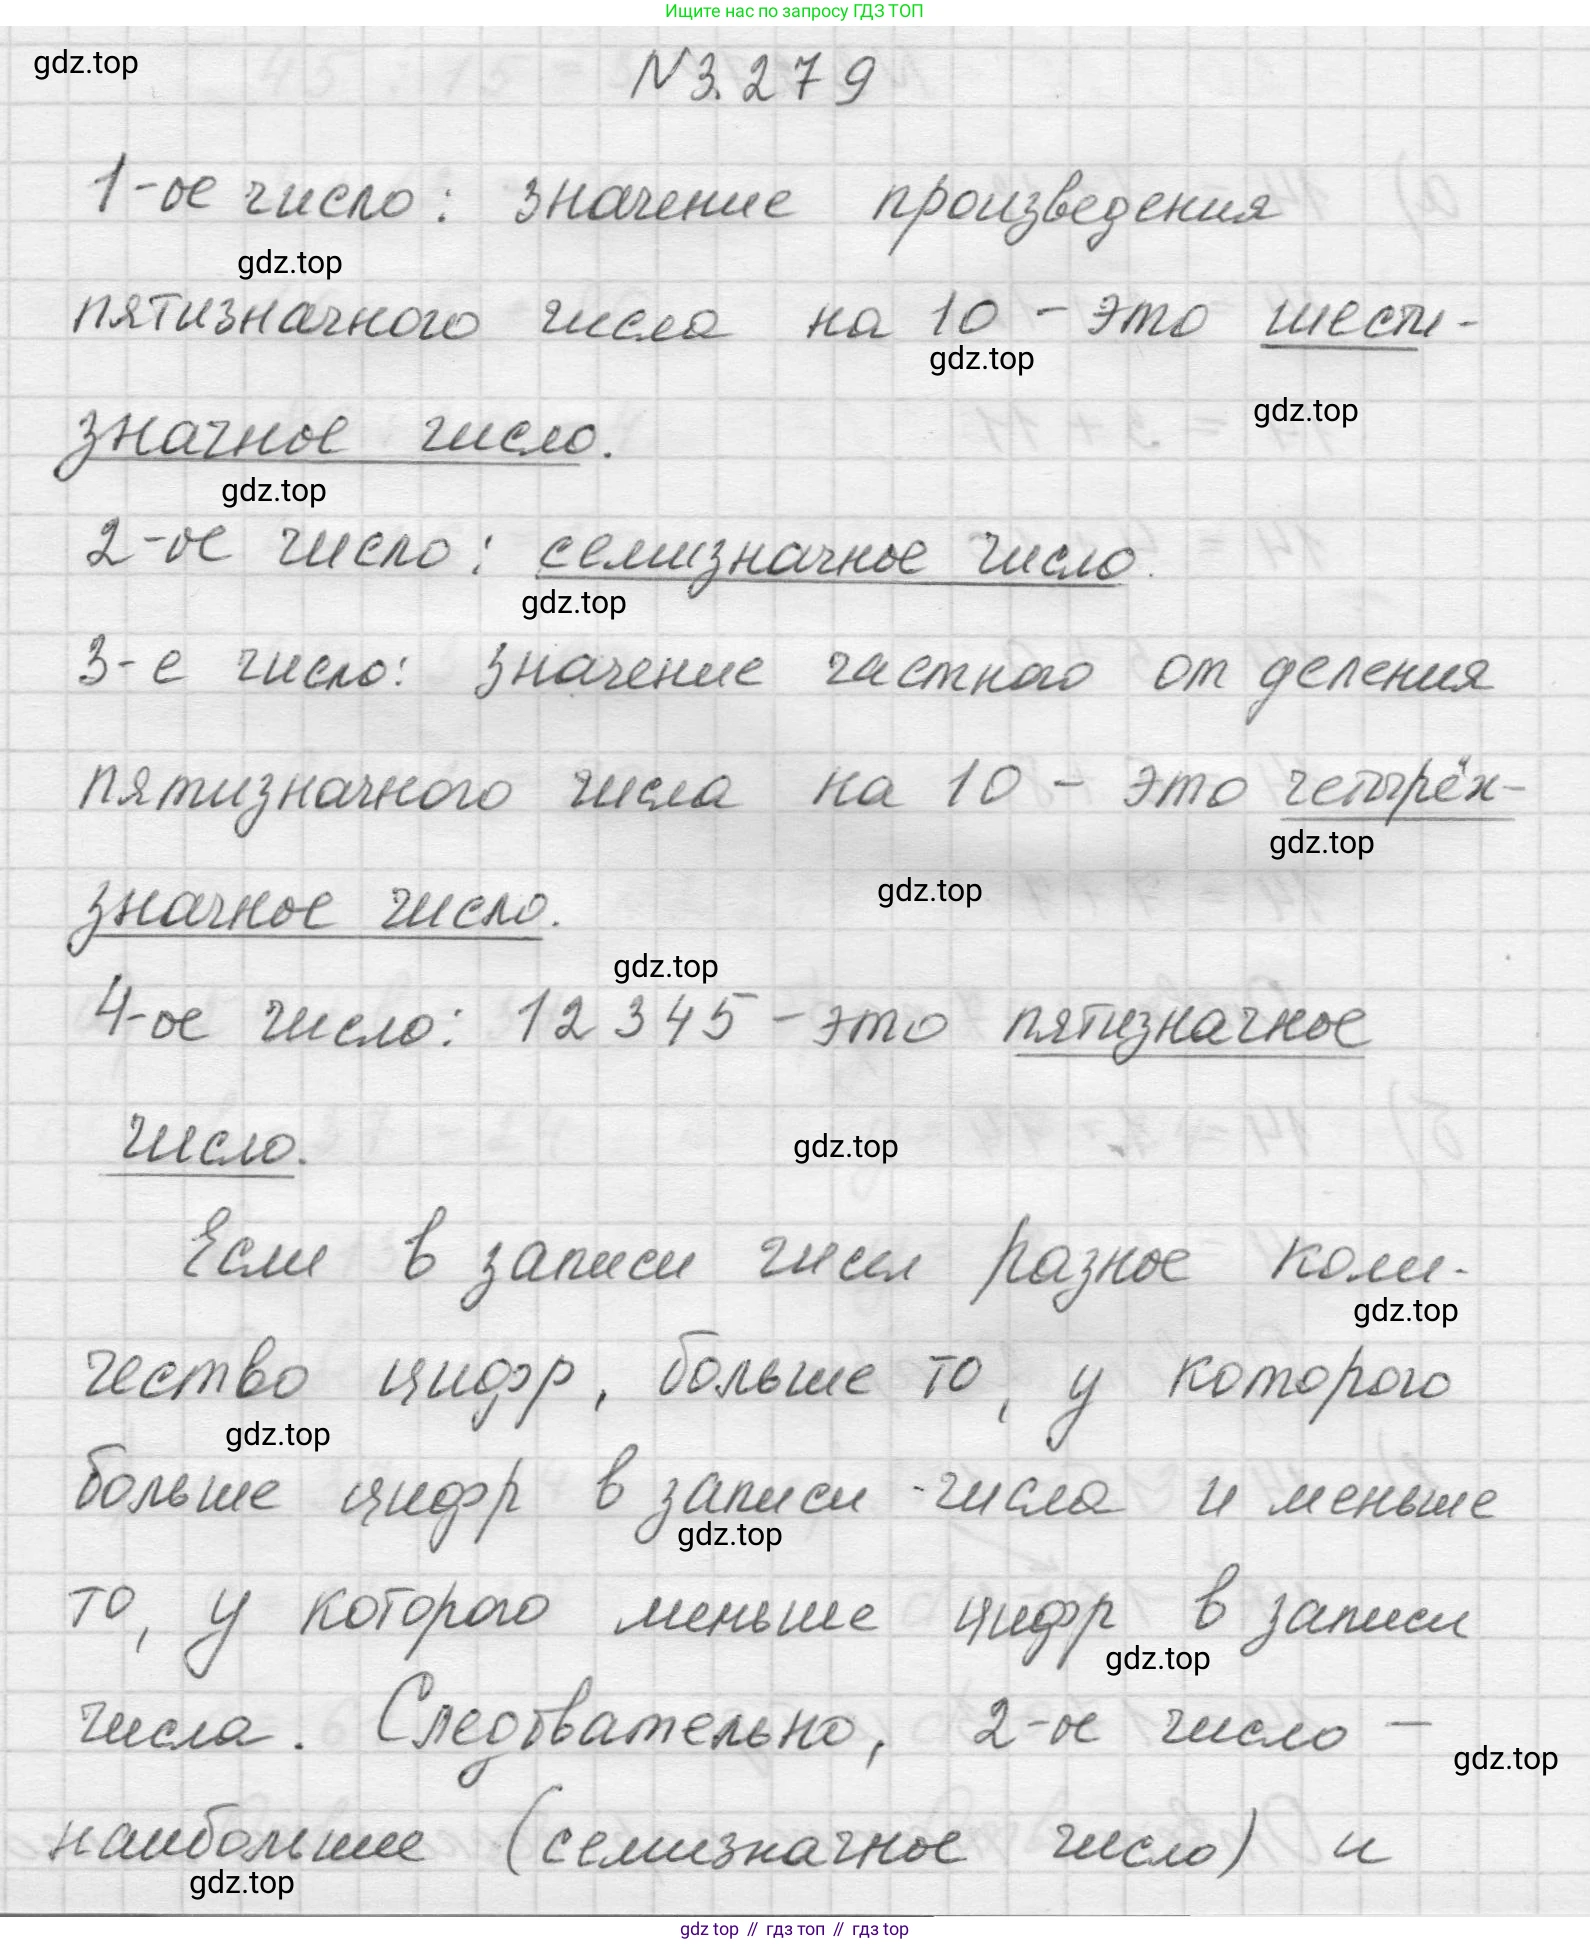 Ищите нас по запросу ГДЗ ТОП
gdz.top
N 3.279
1-ое число: значение произведения
gdz.top
пятизначного числа на 10 - это шести-
gdz.top
gdz.top
значное число.
gdz.top
2-ое число: семизначное число.
gdz.top
3-е число: значение частного от деления
пятизначного числа на 10 - это четырёх-
gdz.top
gdz.top
значное число.
gdz.top
4-ое число: 12345 - это пятизначное
число.
gdz.top
Если в записи чисел разное коли-
gdz.top
чество цифр, больше то, у которого
gdz.top
больше цифр в записи числа и меньше
gdz.top
то, у которого меньше цифр в записи
gdz.top
числа. Следовательно, 2-ое число -
gdz.top
наибольшее (семизначное число) и
gdz.top
gdz top // гдз топ // gdz top